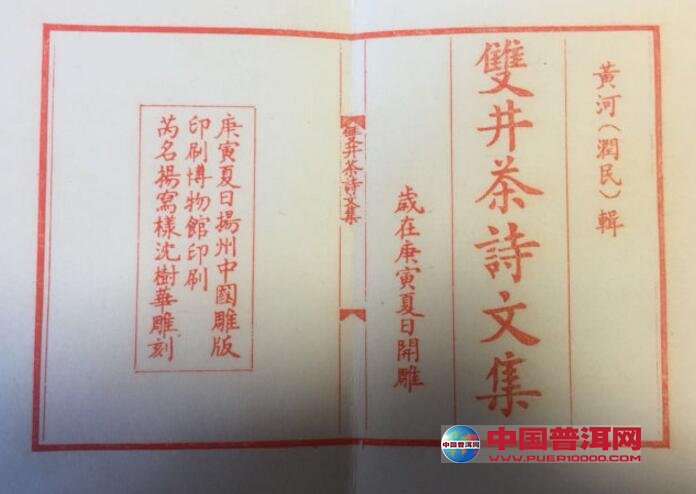 黃河（潤民）輯
雙井茶詩文集
歲在庚寅夏日開雕
雙井茶詩文集
庚寅夏日揚州中國雕版
印刷博物館印刷
芮名揚寫樣沈樹華雕刻
中国普洱网
WWW.PUER10000.COM